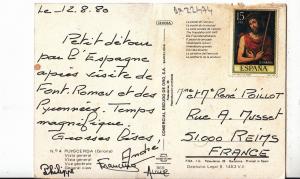 Le 12.8.80
Petit détour
par l'Espagne
après visite de
Font Romeu et des
Pyrénées. Temps
magnifique.
Grosses Bises.
André
Francine
Philippe
N.º 4 PUIGCERDA (Gerona)
Vista general
Vista general
Vue générale
General view
ESCUDO
COMERCIAL ESCUDO DE ORO, S.A.
15
ESPAÑA
Mme et Mr René POILLOT
Rue A. Musset
51000 REIMS
FRANCE